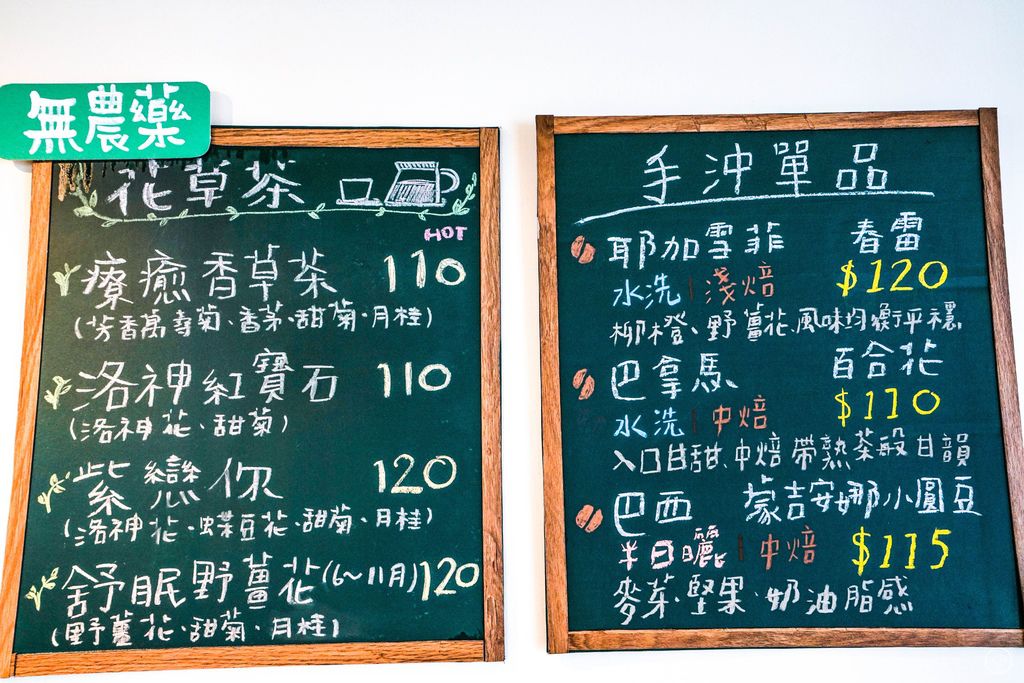 無農藥
花草茶
HOT
療癒香草茶 110
(芳香萬壽菊、香茅、甜菊、月桂)
洛神紅寶石 110
(洛神花、甜菊)
紫戀你 120
(洛神花、蝶豆花、甜菊、月桂)
舒眠野薑花(6~11月) 120
(野薑花、甜菊、月桂)
手沖單品
耶加雪菲 春雷
水洗|淺焙 $120
柳橙、野薑花、風味均衡平穩
巴拿馬 百合花
水洗|中焙 $110
入口甘甜、中焙帶熟茶般甘韻
巴西 蒙吉安娜小圓豆
半日曬|中焙 $115
麥茶、堅果、奶油脂感